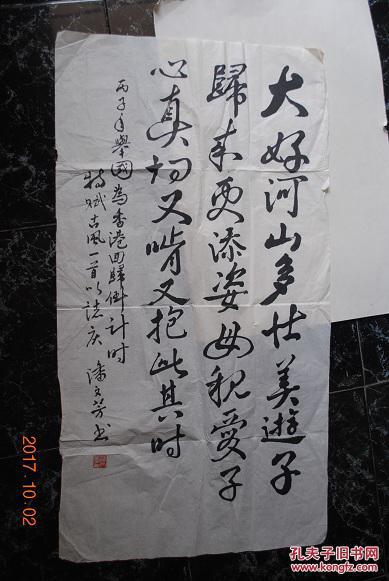 大好河山多壮美遊子
歸来更添姿母親愛子
心真切又啃又抱此其时
丙子年舉國為香港回歸倒计时
特赋古風一首以誌庆 潘文芳书
2017.10.02
孔夫子旧书网
www.kongfz.com